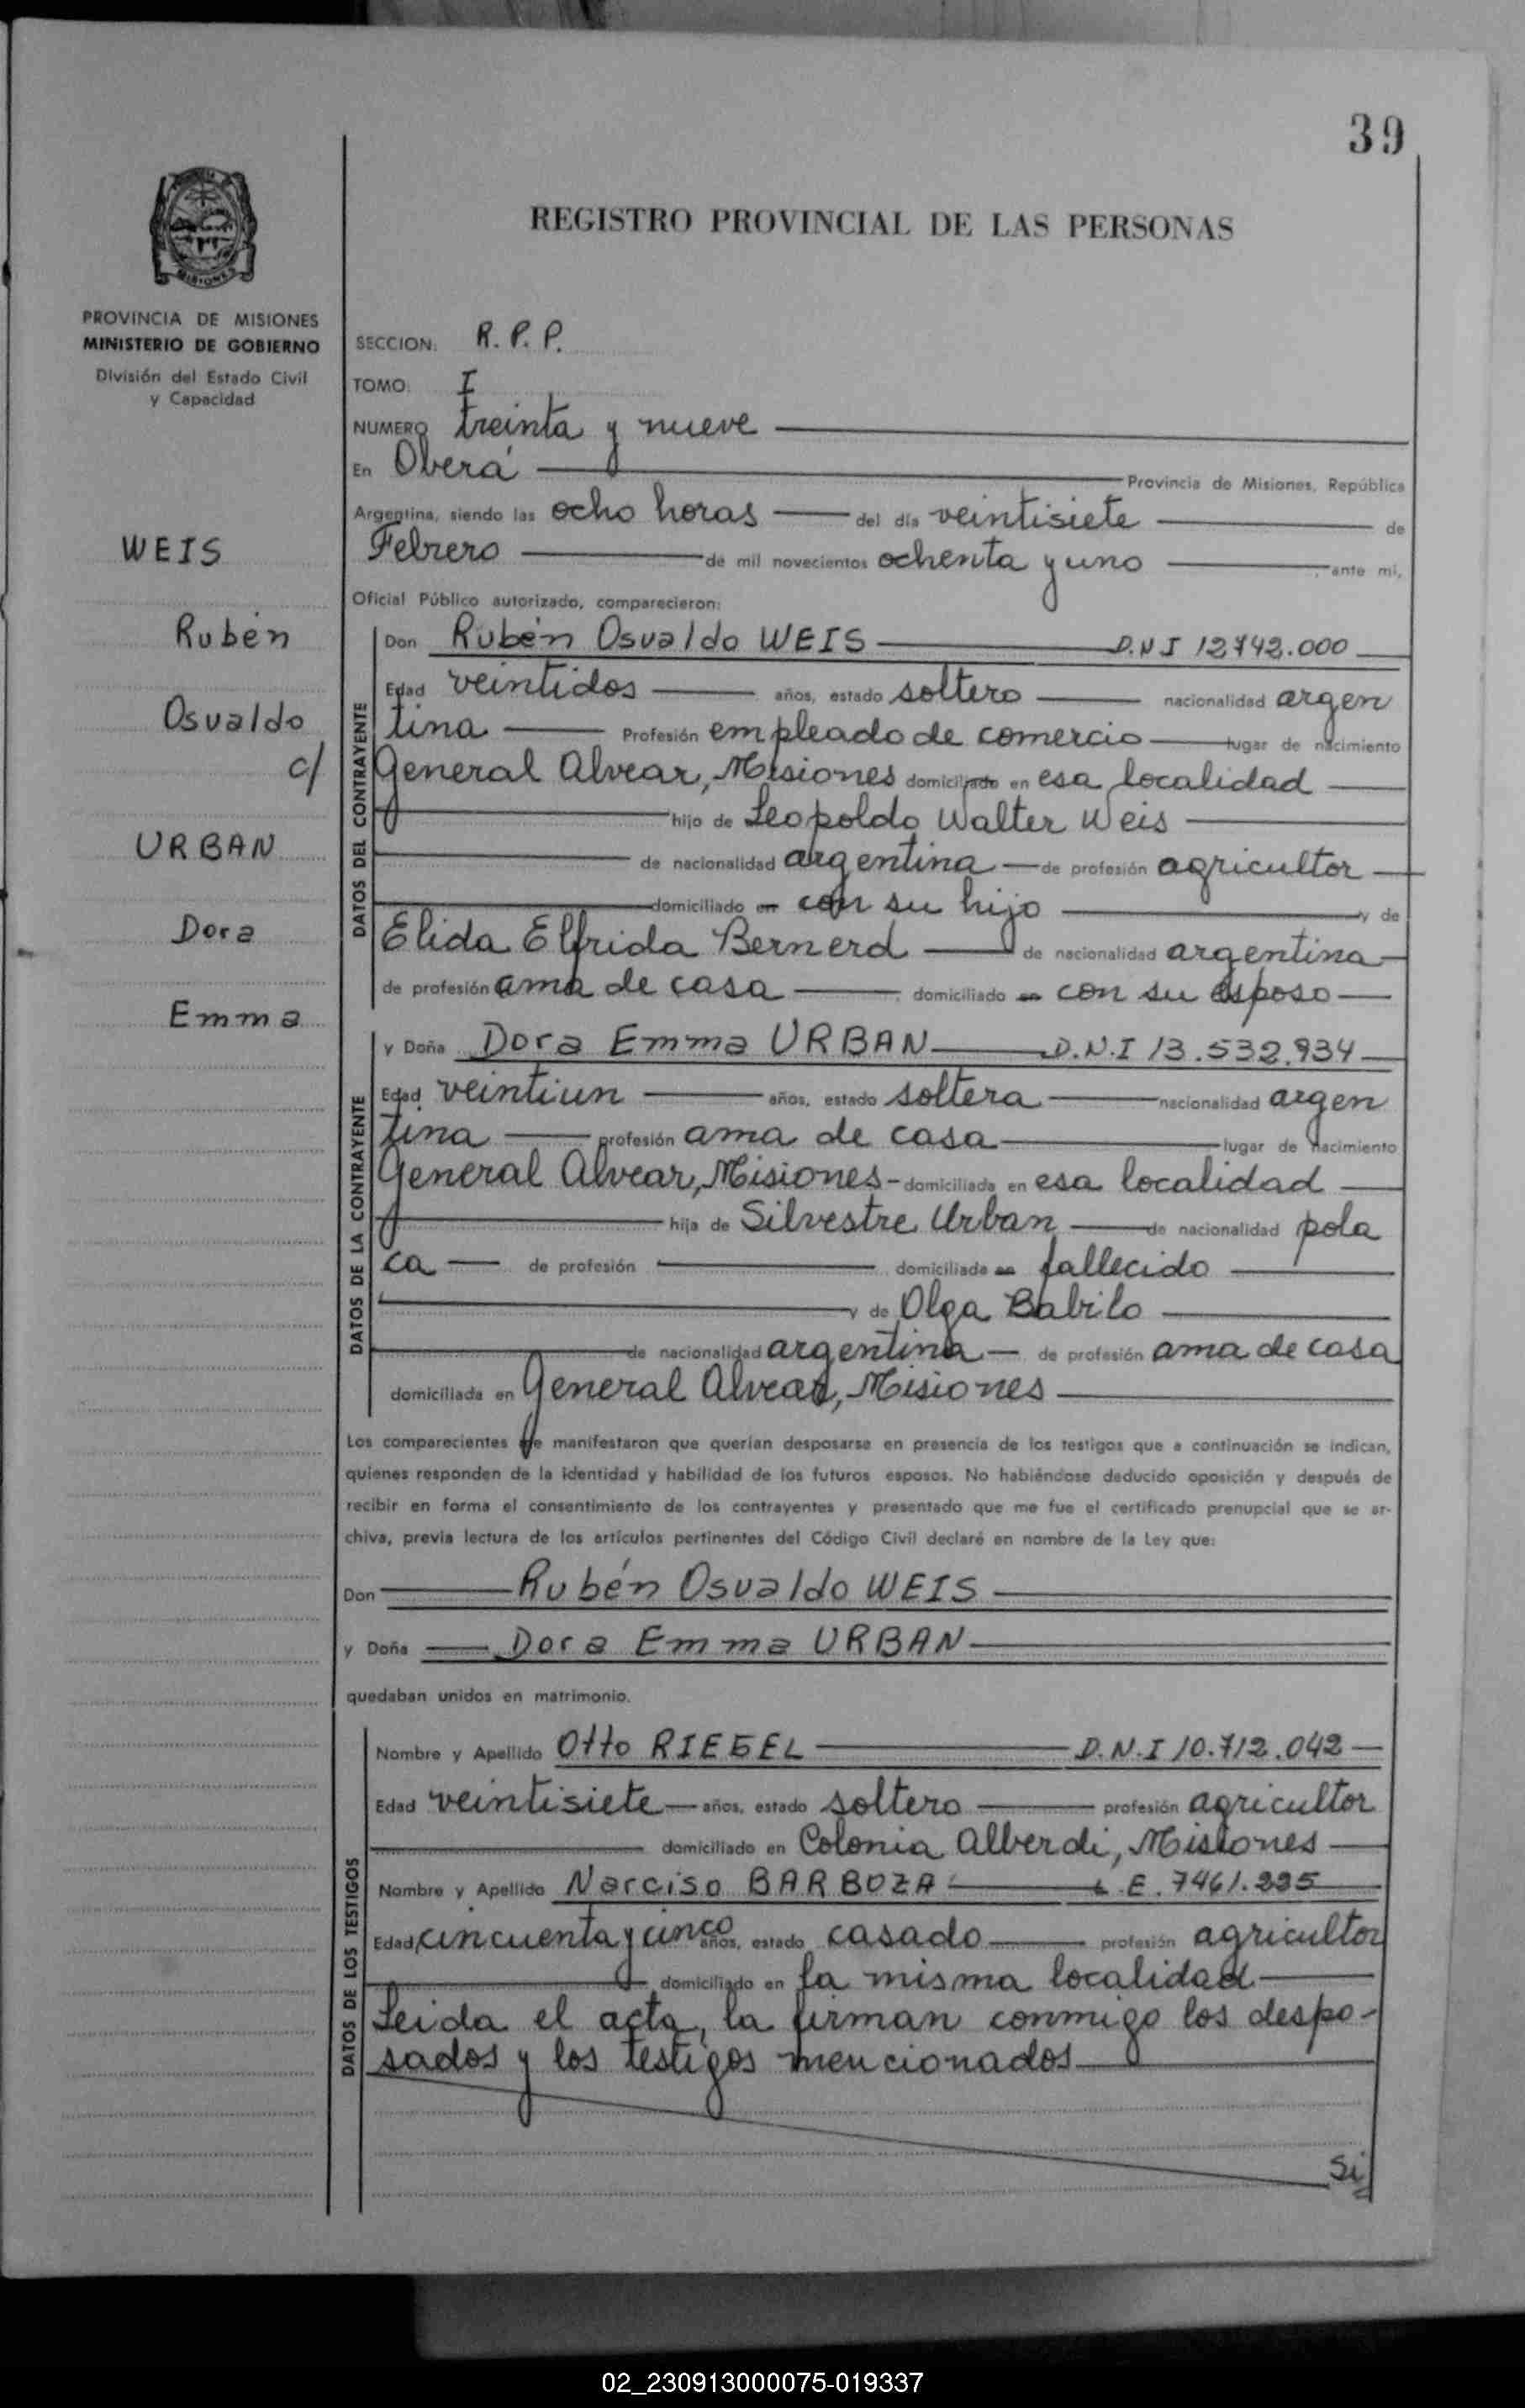 39
MISIONES
PROVINCIA DE MISIONES
MINISTERIO DE GOBIERNO
División del Estado Civil
y Capacidad
WEIS
Rubén
Osvaldo
c/
URBAN
Dora
Emma
REGISTRO PROVINCIAL DE LAS PERSONAS
SECCION: R. P. P.
TOMO: I
NUMERO treinta y nueve
En Oberá Provincia de Misiones, República
Argentina, siendo las ocho horas del día veintisiete de
Febrero de mil novecientos ochenta y uno, ante mi,
Oficial Público autorizado, comparecieron:
DATOS DEL CONTRAYENTE
Don Rubén Osvaldo WEIS D.N.I 12.742.000
Edad veintidos años, estado soltero nacionalidad argen
tina Profesión empleado de comercio lugar de nacimiento
General Alvear, Misiones domiciliado en esa localidad
hijo de Leopoldo Walter Weis
de nacionalidad argentina de profesión agricultor
domiciliado en con su hijo y de
Elida Elfrida Bernerd de nacionalidad argentina
de profesión ama de casa domiciliado en con su esposo
DATOS DE LA CONTRAYENTE
y Doña Dora Emma URBAN D.N.I 13.532.934
Edad veintiun años, estado soltera nacionalidad argen
tina profesión ama de casa lugar de nacimiento
General Alvear, Misiones - domiciliada en esa localidad
hija de Silvestre Urban de nacionalidad pola
ca de profesión domiciliada en fallecido
y de Olga Babilo
de nacionalidad argentina de profesión ama de casa
domiciliada en General Alvear, Misiones
Los comparecientes me manifestaron que querían desposarse en presencia de los testigos que a continuación se indican,
quienes responden de la identidad y habilidad de los futuros esposos. No habiéndose deducido oposición y después de
recibir en forma el consentimiento de los contrayentes y presentado que me fue el certificado prenupcial que se ar-
chiva, previa lectura de los artículos pertinentes del Código Civil declaré en nombre de la Ley que:
Don Rubén Osvaldo WEIS
y Doña Dora Emma URBAN
quedaban unidos en matrimonio.
DATOS DE LOS TESTIGOS
Nombre y Apellido Otto RIEGEL D.N.I 10.712.042
Edad veintisiete años, estado soltero profesión agricultor
domiciliado en Colonia Alberdi, Misiones
Nombre y Apellido Narciso BARBOZA L.E. 7461.235
Edad cincuenta y cinco años, estado casado profesión agricultor
domiciliado en la misma localidad
Leida el acta, la firman conmigo los despo-
sados y los testigos mencionados
Si
02_230913000075-019337